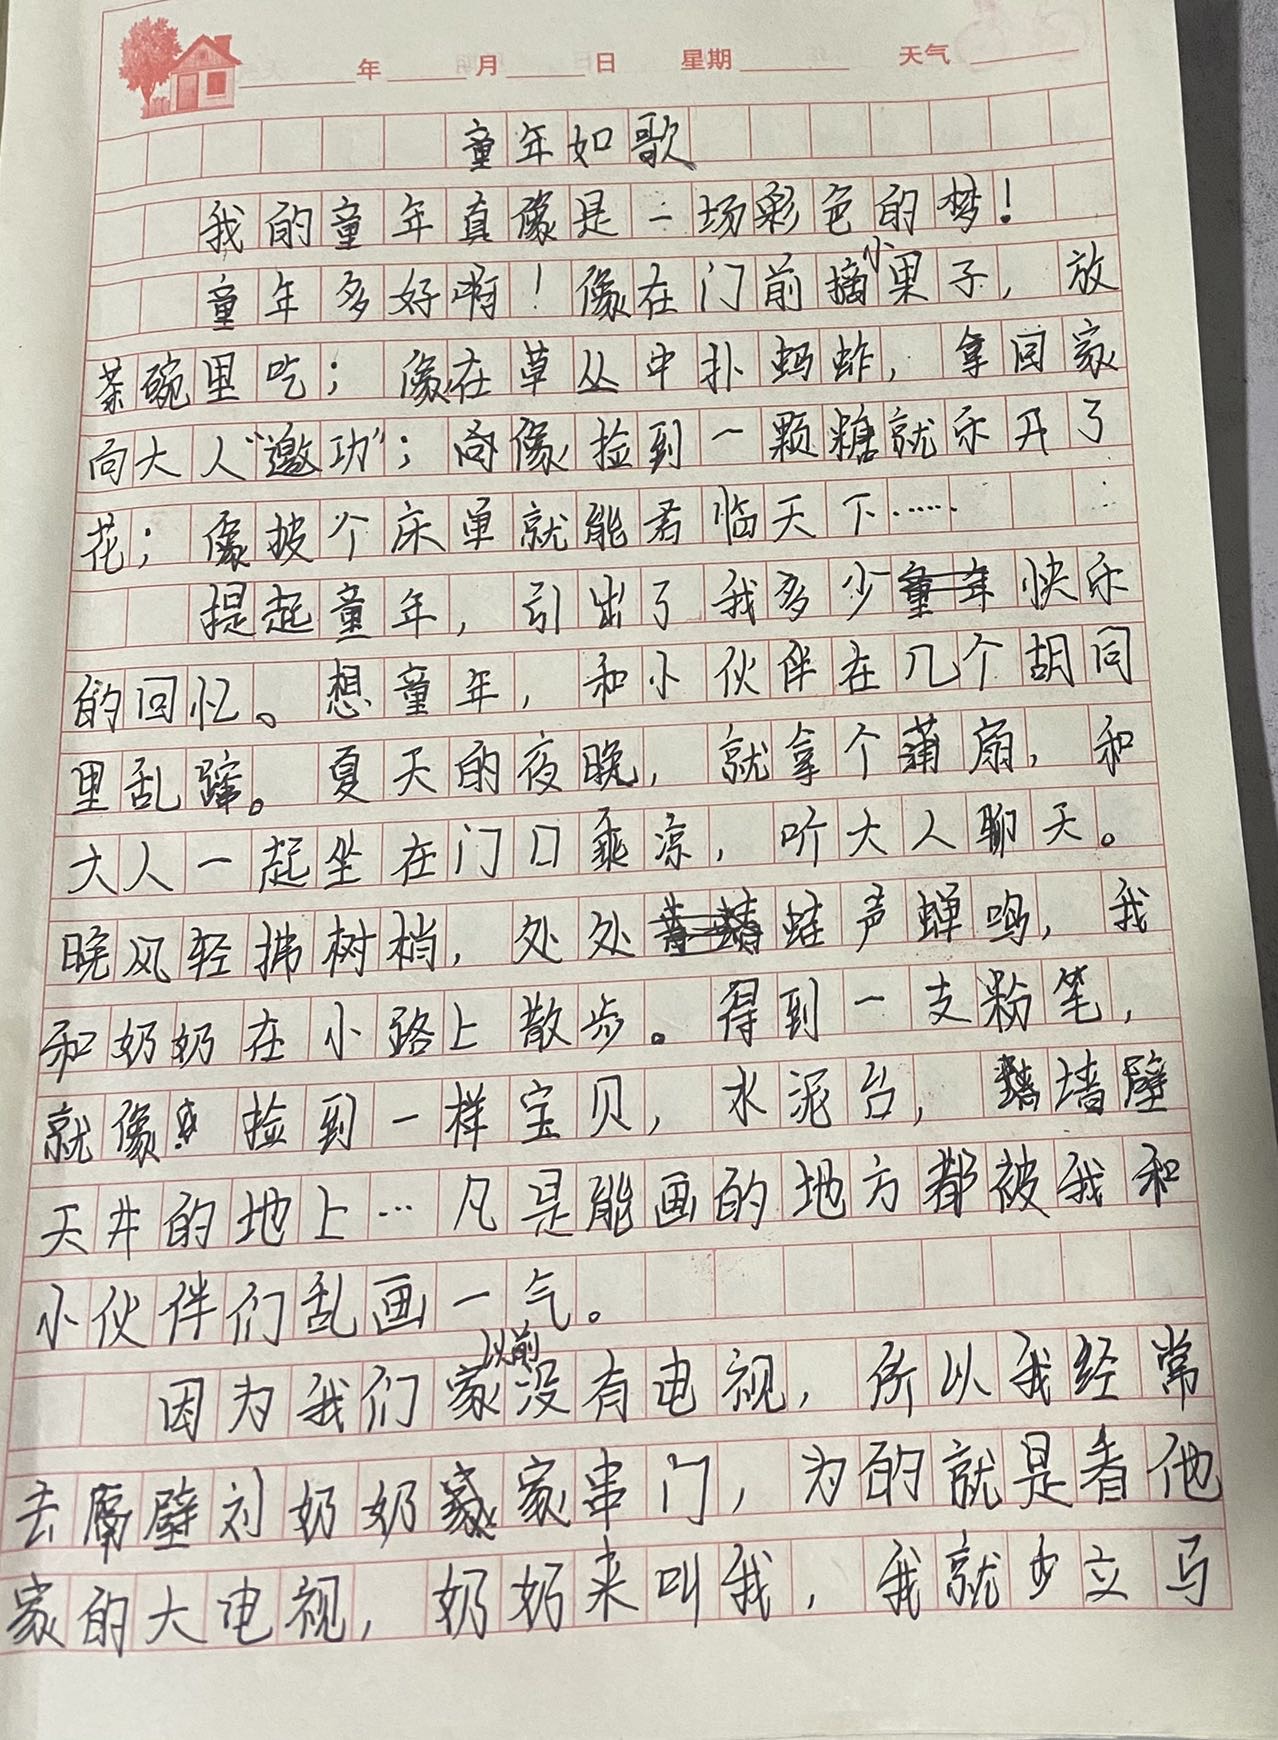 年 月 日 星期 天气
童年如歌
我的童年真像是一场彩色的梦！
童年多好啊！像在门前摘小果子，放
茶碗里吃；像在草丛中扑蚂蚱，拿回家
向大人“邀功”；像捡到一颗糖就乐开了
花；像披个床单就能君临天下……
提起童年，引出了我多少快乐
的回忆。想童年，和小伙伴在几个胡同
里乱蹿。夏天的夜晚，就拿个蒲扇，和
大人一起坐在门口乘凉，听大人聊天。
晚风轻拂树梢，处处蛙声蝉鸣，我
和奶奶在小路上散步。得到一支粉笔，
就像捡到一样宝贝，水泥台，墙壁
天井的地上…凡是能画的地方都被我和
小伙伴们乱画一气。
因为我们家以前没有电视，所以我经常
去隔壁刘奶奶家串门，为的就是看他
家的大电视，奶奶来叫我，我就立马